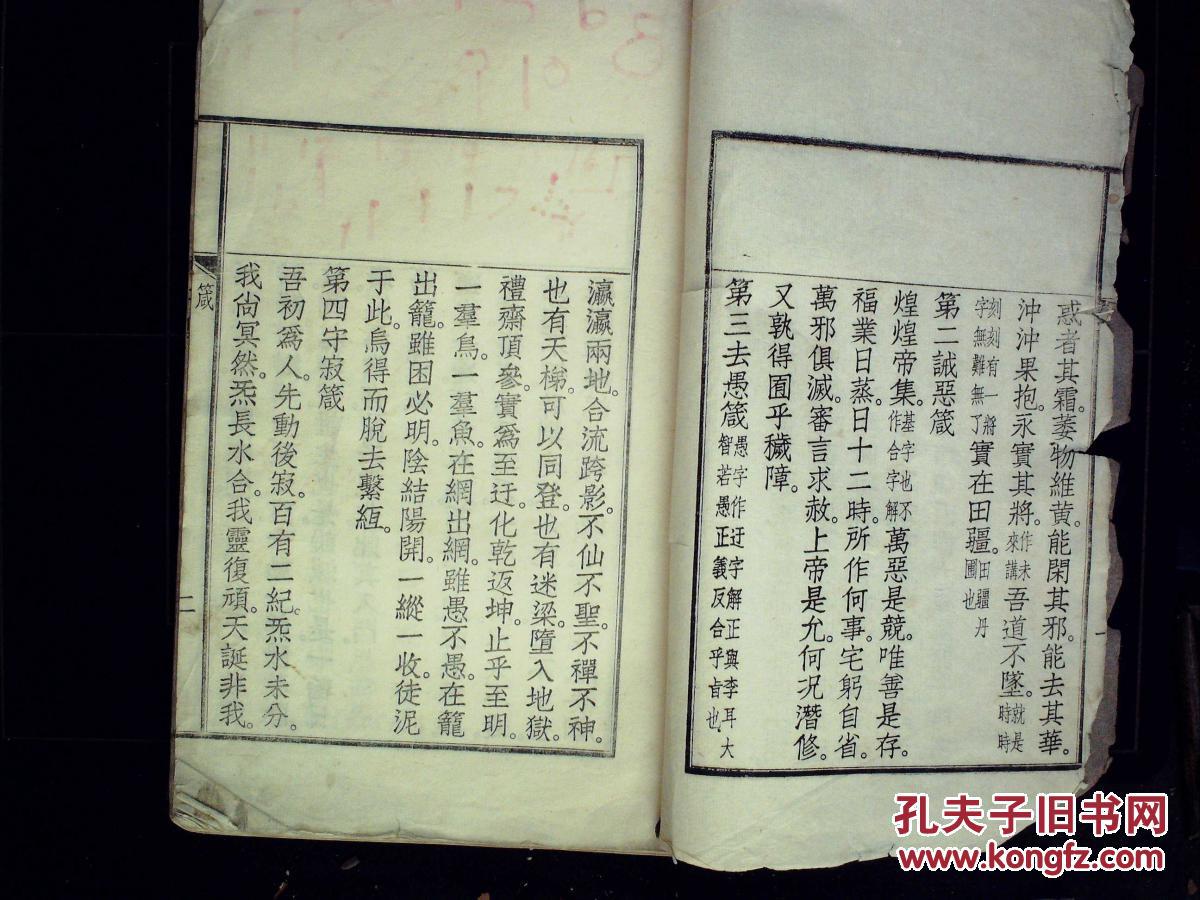 惑者其霜。萎物維黄。能閑其邪。能去其華。
沖沖果抱。永實其將。作未來講吾道不墜。就是時時
刻刻有一將字無難無了實在田疆。田疆丹圃也
第二誡惡箴
煌煌帝集。基字也不作合字解萬惡是競。唯善是存。
福業日蒸。日十二時。所作何事。宅躬自省。
萬邪俱滅。審言求赦。上帝是允。何況潛修。
又孰得囿乎穢障。
第三去愚箴愚字作迂字解正與李耳大智若愚正義反合乎㫖也
瀛瀛兩地。合流跨影。不仙不聖。不禪不神。
也有天梯。可以同登。也有迷梁。墮入地獄。
禮齋頂參。實爲至迂。化乾返坤。止乎至明。
一羣鳥。一羣魚。在網出網。雖愚不愚。在籠
出籠。雖困必明。陰結陽開。一縱一收。徒泥
于此。烏得而脫去繫絙。
第四守寂箴
吾初爲人。先動後寂。百有二紀。炁水未分。
我尙冥然。炁長水合。我靈復頑。天誕非我。
箴
一
二
孔夫子旧书网
www.kongfz.com